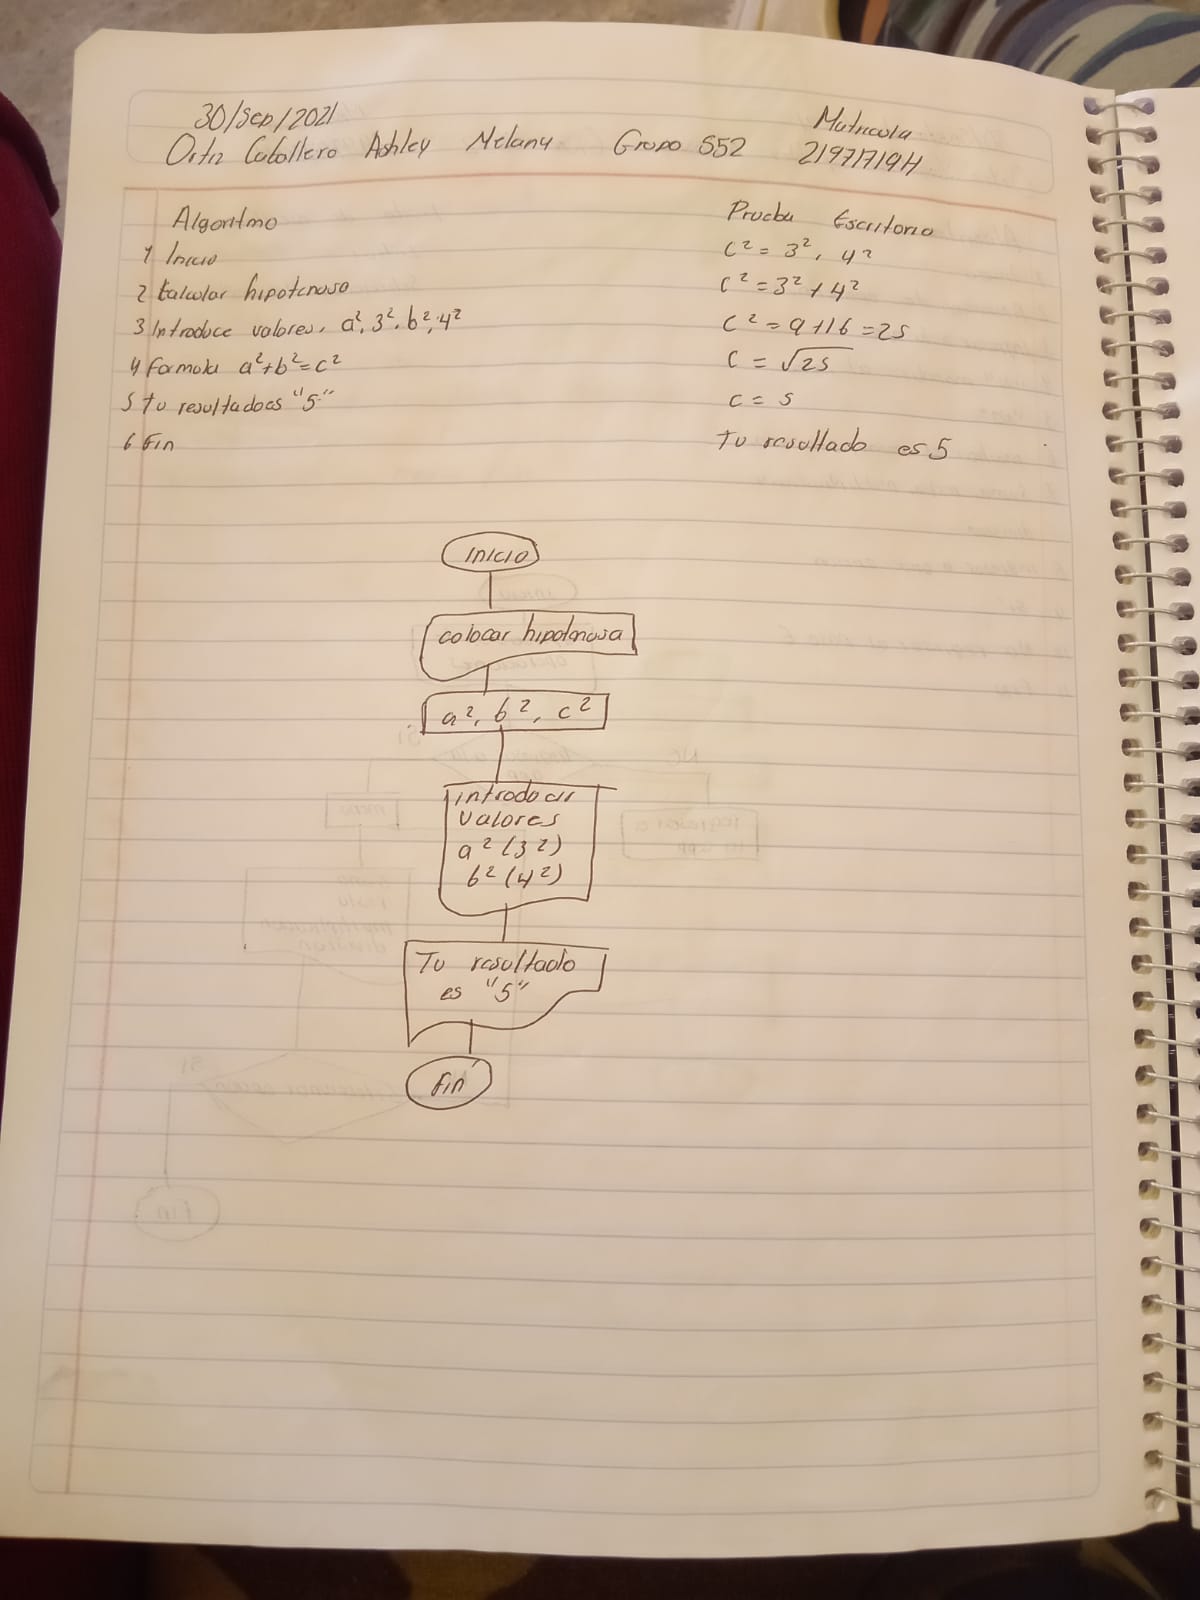 30/Sep/2021
Ortiz Caballero Ashley Melany Grupo S52
Matricula
21971719H
Algoritmo
1 Inicio
2 Calcular hipotenusa
3 Introduce valores, a², 3², b², 4²
4 formula a²+b²=c²
5 Tu resultado es "5"
6 Fin
Prueba Escritorio
c² = 3², 4²
c² = 3² + 4²
c² = 9+16 = 25
c = √25
c = 5
Tu resultado es 5
Inicio
colocar hipotenusa
a², b², c²
introducir
valores
a² (3²)
b² (4²)
Tu resultado
es "5"
Fin